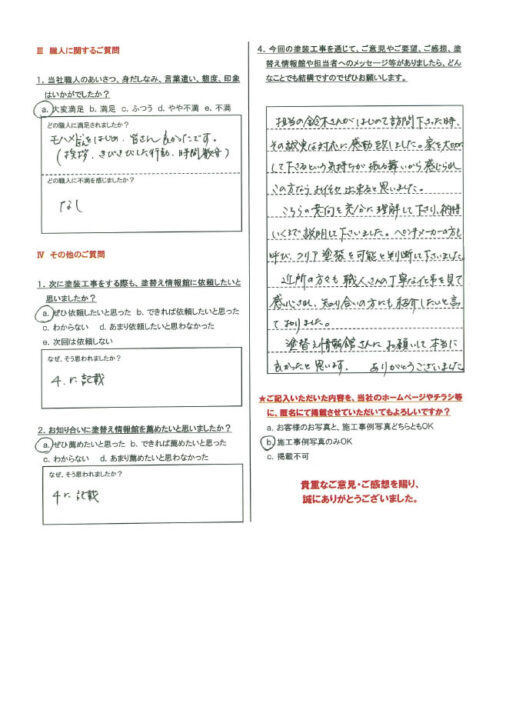 Ⅲ 職人に関するご質問
1. 当社職人のあいさつ、身だしなみ、言葉遣い、態度、印象
はいかがでしたか？
a.大変満足 b. 満足 c. ふつう d. やや不満 e. 不満
どの職人に満足されましたか？
モハメドさんをはじめ、皆さん良かったです。
(挨拶、きびきびした行動、時間厳守)
どの職人に不満を感じましたか？
なし
Ⅳ その他のご質問
1. 次に塗装工事をする際も、塗替え情報館に依頼したいと
思いましたか？
a.ぜひ依頼したいと思った b. できれば依頼したいと思った
c. わからない d. あまり依頼したいと思わなかった
e. 次回は依頼しない
なぜ、そう思われましたか？
4.に記載
2. お知り合いに塗替え情報館を薦めたいと思いましたか？
a.ぜひ薦めたいと思った b. できれば薦めたいと思った
c. わからない d. あまり薦めたいと思わなかった
なぜ、そう思われましたか？
4に記載
4. 今回の塗装工事を通じて、ご意見やご要望、ご感想、塗
替え情報館や担当者へのメッセージ等がありましたら、どん
なことでも結構ですのでぜひお願いします。
担当の鈴木さんがはじめて訪問下さった時、
その誠実な対応に感動致しました。家を大切に
して下さるという気持ちが振る舞いから感じられ
この方なら お任せ出来ると思いました。
こちらの意向を充分に理解して下さり、納得
いくまで説明して下さいました。ペンキメーカーの方も
呼び、クリア塗装を可能と判断して下さいました。
近所の方々も職人さんの丁寧な仕事を見て
感心され、知り合いの方にも紹介したいと言っ
て おりました。
塗替え情報館さんにお願いして本当に
良かったと思います。 ありがとうございました
★ご記入いただいた内容を、当社のホームページやチラシ等
に、匿名にて掲載させていただいてもよろしいですか？
a. お客様のお写真と、施工事例写真どちらともOK
b.施工事例写真のみOK
c. 掲載不可
貴重なご意見・ご感想を賜り、
誠にありがとうございました。